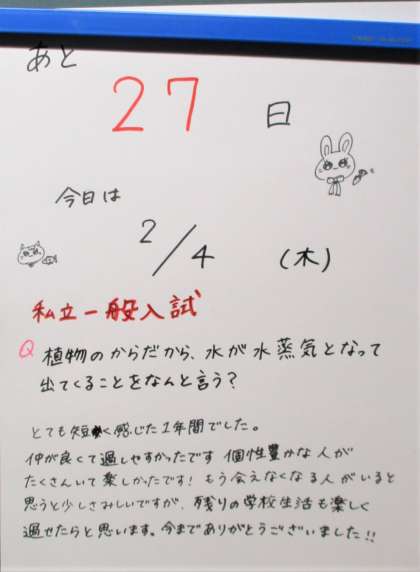 あと
27 日
今日は
2/4 (木)
私立一般入試
Q 植物のからだから、水が水蒸気となって
出てくることをなんと言う?
とても短く感じた1年間でした。
仲が良くて過しやすかったです 個性豊かな人が
たくさんいて楽しかったです! もう会えなくなる人がいると
思うと少しさみしいですが、残りの学校生活も楽しく
過せたらと思います。今までありがとうございました!!